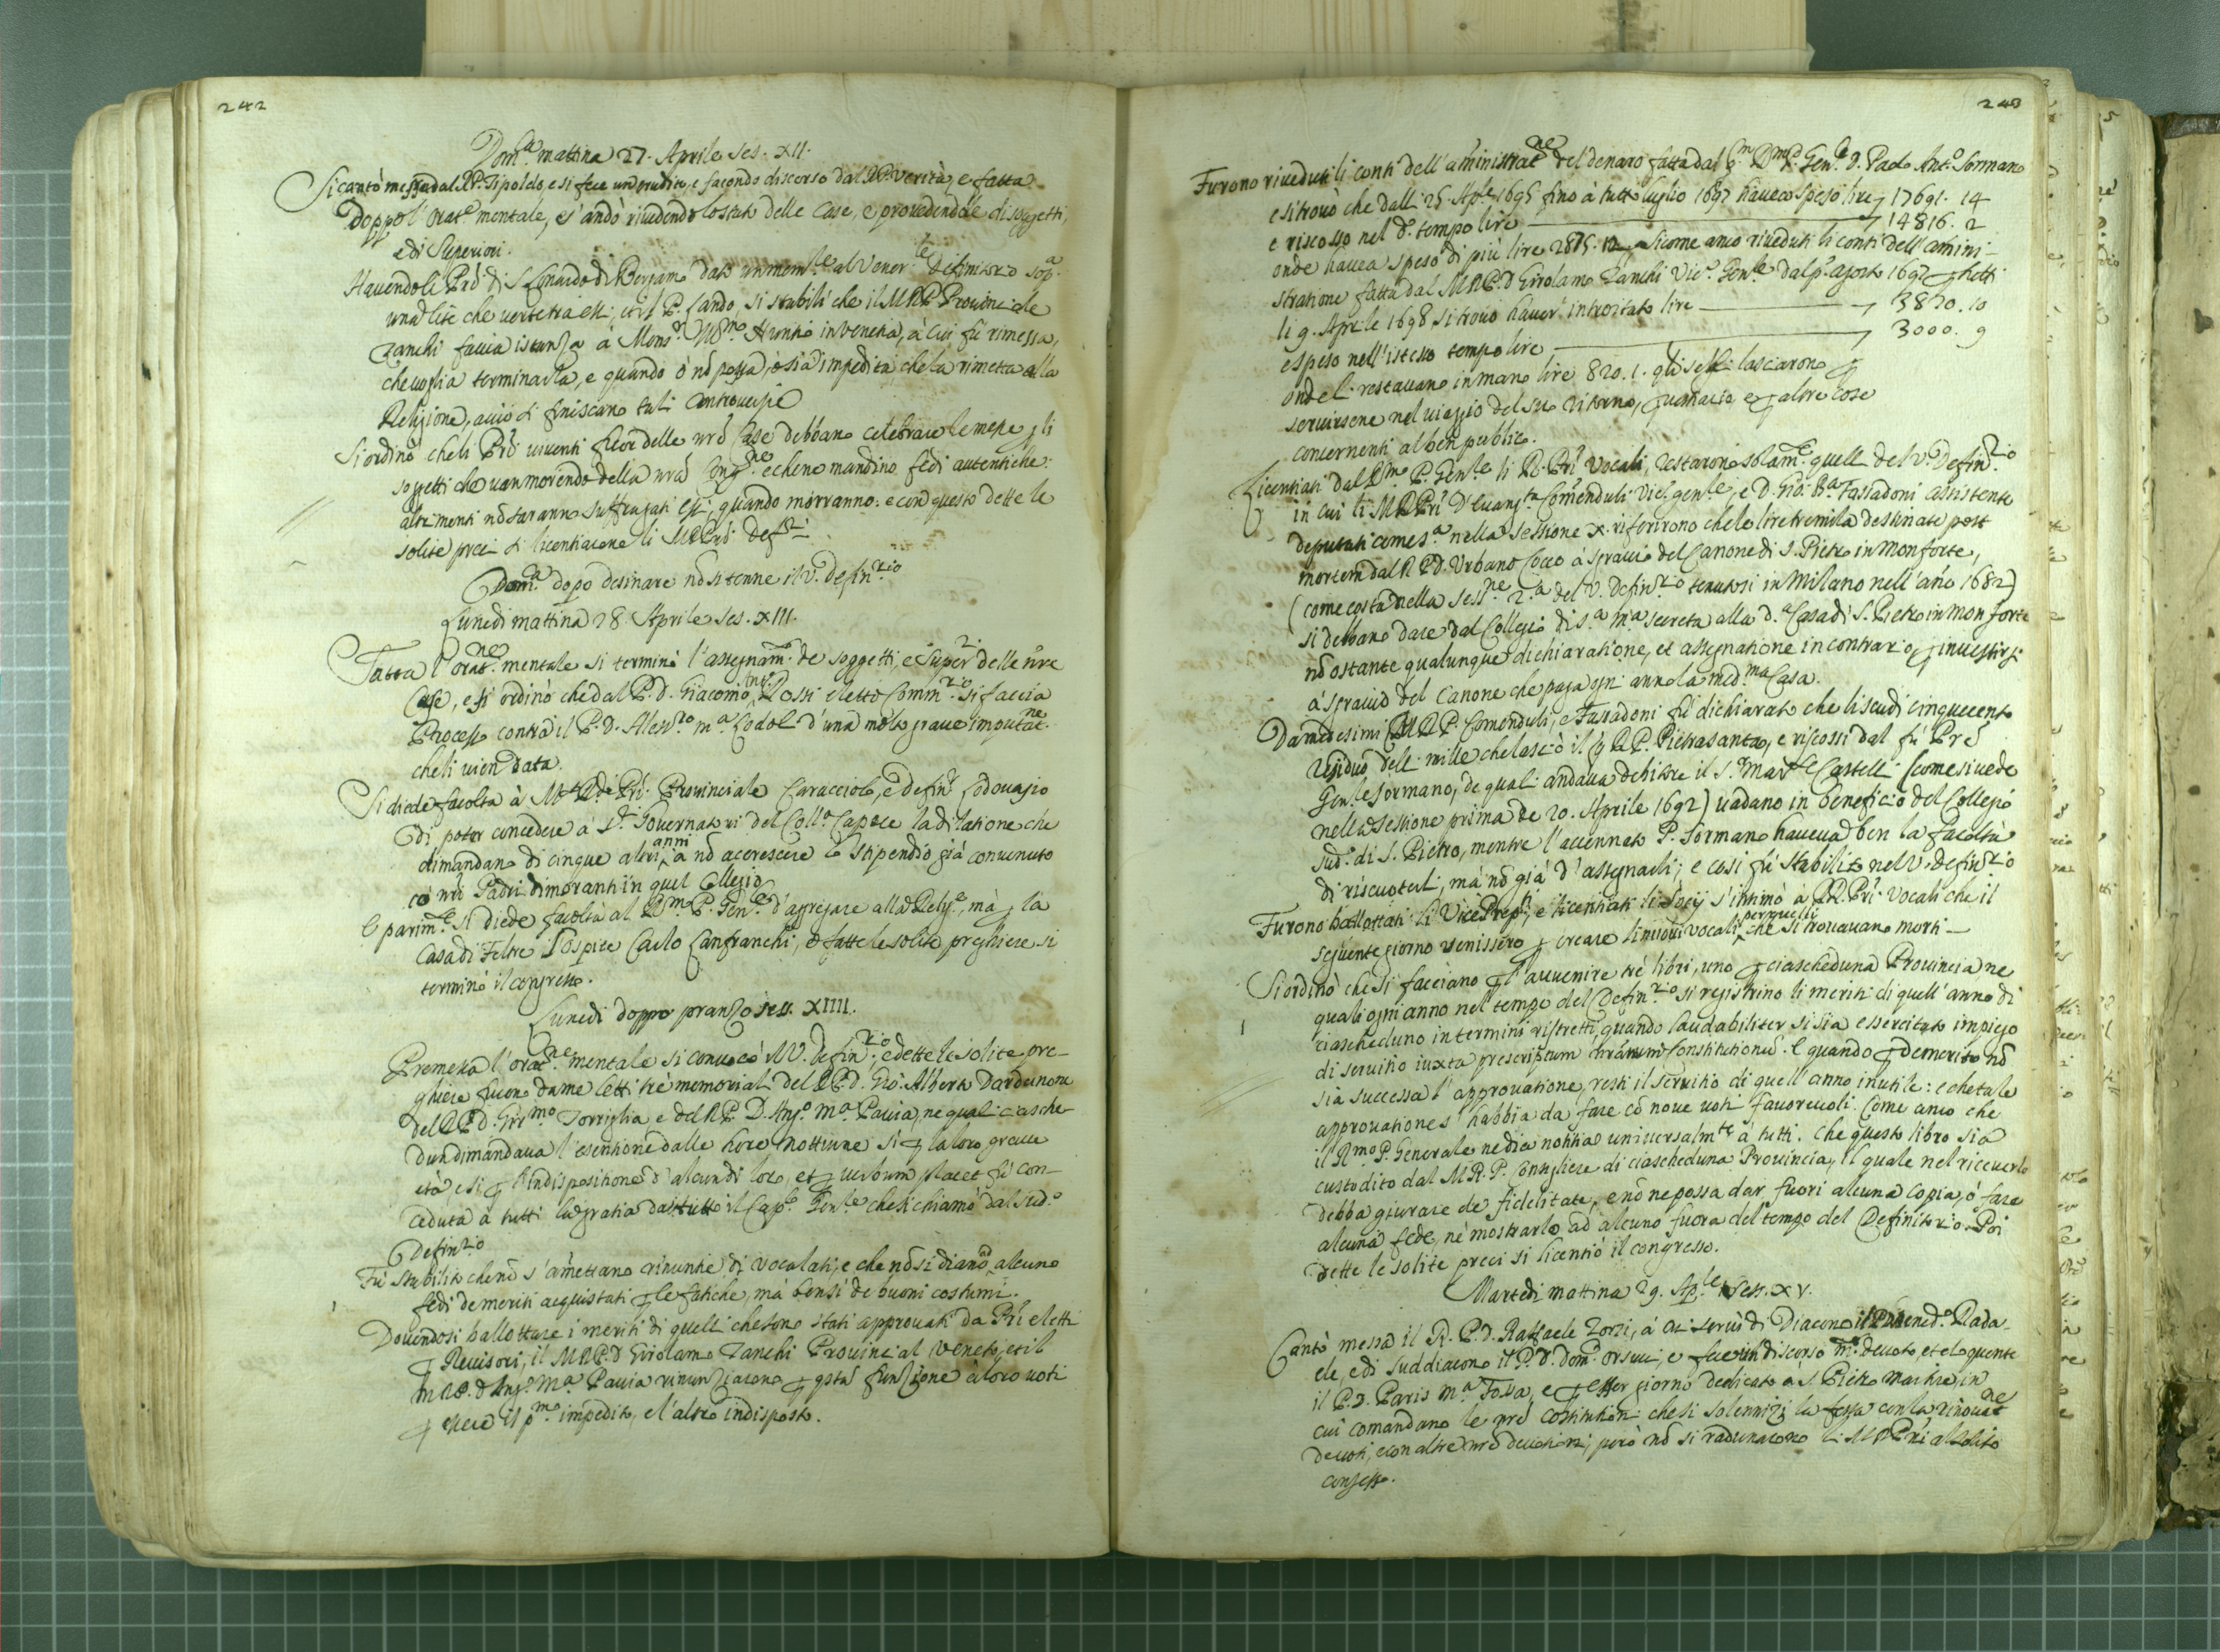 242
Dom.ca mattina 27. Aprile Ses. XII.
Si cantò messa dal R.P. Tipoldo, e si fece un erudito, e facondo discorso dal R.P. Verità, e fatta
doppo l'orat.e mentale, s'andò rivedendo lo stato delle Case, e provedendole di soggetti,
e di Superiori.
Havendo li Prd di S. Lonardo di Bergamo dato un mem.le al Vener.le Definitorio sop.a
una lite che verte tra essi, et il P. Lando, si stabilì che il M.R.P. Provinciale
Zanchi faccia istanza à Mons.r Nuntio in Venetia, à cui fù rimessa,
che voglia terminarla, e quando ò nō possa, ò sia impedita che la rimetta alla
Religione, acciò si finiscano tali Controversie
Si ordinò che li Prī viventi fuor delle nrē Case debbano celebrare le messe p li
soggetti che van morendo della nrā Cong.ne e che ne mandino fedi autentiche:
altrimenti nō saranno suffragati essi, quando morranno: e con questo dette le
solite preci si licentiarono li M.RR.Prī Def.ri
Dom.ca dopo desinare nō si tenne il V. Defin.rio
Lunedi mattina 28 Aprile Ses. XIII.
Fatta l'orat.ne mentale si terminò l'assegnam.o de soggetti, e Super.ri delle nr̄e
Case, e si ordinò che dal P.D. Giacomo Ant.o Rossi eletto Comm.rio si faccia
Processo contra il P.D. Aless.ro M.a Codol d'una molto grave imputat.ne
che li vien data.
Si diede facolta à M.RR. Prī Provinciale Caracciolo, e Defin.r Lodovasio
di poter concedere a S.ri Governatori del Coll.o Capece la dilatione che
dimandano di cinque altri anni, à nō accrescere lo stipendio già convenuto
cō nrī Padri dimoranti in quel Collegio
E parim.te si diede facoltà al R.mo P. Gen.le d'agregare alla Relig.e, mà p la
Casa di Feltre l'ospite Carlo Canfranchi, e fatte le solite preghiere si
terminò il congresso.
Lunedi doppo pranzo sess. XIIII.
Premessa l'orat.ne mentale si convocò il V. Defin.rio, e dette le solite pre-
ghiere furono da me letti tre memoriali del R.P.D. Gio. Alberto Dardanone
del R.P.D. Gir.mo Torriglia e del R.P. D. Ang.o M.a Pavia, ne quali ciasche
dun dimandava l'esentione dalle hore notturne sì p la loro grave
età e sì p l'indispositione d'alcun di loro, et p verbum placet fù con-
ceduta à tutti la gratia da tutto il Cap.lo Gen.le che si chiamò dal sud.o
Defin.rio
Fù stabilito che nō s'amettano rinuntie di vocalati, e che nō si diano ad alcuno
fedi de meriti acquistati p le fatiche, mà bensì de buoni costumi.
Dovendosi ballottare i meriti di quelli che sono stati approvati da Prī eletti
p Revisori, il M.R.P.D Girolamo Zanchi Provincial Veneto, et il
M.R.P. D Ang.o M.a Pavia rinunziarono p q̄sta funzione à loro voti
p essere il p.mo impedito, e l'altro indisposto.
243
Furono riveduti li conti dell'aministrat.ne del denaro fatta dal R.mo P. Gen.le D. Paolo Ant.o Sormano
e si trovò che dalli 25. Ap.le 1695 fino à tutto luglio 1697 haveva speso lire 17691. 14
e riscosso nel d.o tempo lire 14816. 2
onde havea speso di più lire 2875. 12. Sicome anco riveduti li conti dell'amini-
stratione fatta dal M.R.P.D Girolamo Zanchi Vic.o Gen.le dal p.o agosto 1697 p tutti
li 9. Aprile 1698 si trovò haver introitato lire 3820. 10
e speso nell'istesso tempo lire 3000. 9
onde li restavano in mano lire 820. 1. qli se li lasciarono p
servirsene nel viaggio del suo ritorno, e p altre cose
concernenti al ben publico.
Licentiati dal R.mo P. Gen.le li R. Prī Vocali, restarono solam.te quelli del V. Defin.rio
in cui li M.RR.Prī D. Evang.ta Comenduli Vic.o gen.le, e D. Gio. B.a Fassadoni assistente
deputati come s.a nella sessione X. riferirono che le lire tremila destinate post
mortem dal R P.D. Urbano Cocco à sgravio del Canone di S. Pietro in Monforte,
(come costa nella Sess.ne 2.a del V. Defin.rio tenutosi in Milano nell'año 1682)
si debbano dare dal Collegio di S.a M.a Secreta alla d.a Casa di S. Pietro in Monforte
nō ostante qualunque dichiaratione, et assegnatione in contrario, p investirsi
à sgravio del Canone che paga ogni anno la med.ma Casa.
Da medesimi M.RR.P. Comenduli, e Fassadoni fù dichiarato che li scudi cinquecento
residuo delli mille che lasciò il q. R.P. Pietrasanta, e riscossi dal fù Prē
Gen.le Sormano, de quali andava debitore il S.r Mar.se Castelli (come si vede
nella sessione prima de 20. Aprile 1692) vadano in beneficio del Collegio
sud.o di S. Pietro, mentre l'accennato P. Sormano haveva ben la facoltà
di riscuoterli, mà nō già d'assegnarli; e così fù stabilito nel V. Defin.rio
Furono ballottati li Vice Prep.ti, e licentiati li Socij s'intimò à RR. Prī Vocali che il
seguente giorno venissero p creare li nuovi vocali per quelli che si trovavano morti
Si ordinò che si facciano p l'avvenire trè libri, uno p ciascheduna Provincia ne
quali ogni anno nel tempo del Defin.rio si registrino li meriti di quell'anno di
ciascheduno in termini ristretti, quando laudabiliter si sia essercitato impiego
di servitio iuxta prescriptum nrārum Constitutionū. E quando p demerito nō
sia successa l'approvatione, resti il servitio di quell'anno inutile: e che tale
approvatione s'habbia da fare cō nove voti favorevoli. Come anco che
il R.mo P. Generale ne dia notitia universalm.te à tutti. Che questo libro sia
custodito dal M.R.P. Consigliere di ciascheduna Provincia, il quale nel riceverlo
debba giurare de fidelitate, e nō ne possa dar fuori alcuna copia, ò fare
alcuna fede, nè mostrarlo ad alcuno fuora del tempo del Definitorio. Poi
dette le solite preci si licentiò il congresso.
Martedi mattina 29. Ap.le Sess. XV.
Cantò messa il R. P.D. Raffaele Zorzi, à cui servì di Diacono il P.D. Bened.o Rada-
ele, e di suddiacono il P.D. Dom.o Orsuci, e fece un discorso m.to devoto, et eloquente
il P.D. Paris M.a Tossa, e p esser giorno dedicato à S. Pietro Martire, in
cui comandano le nrē Costitutioni che si solennizi la festa con la rinovat.ne
de voti, e con altre nrē devotioni, però nō si radunarono li M.RR.Prī al solito
consesso.